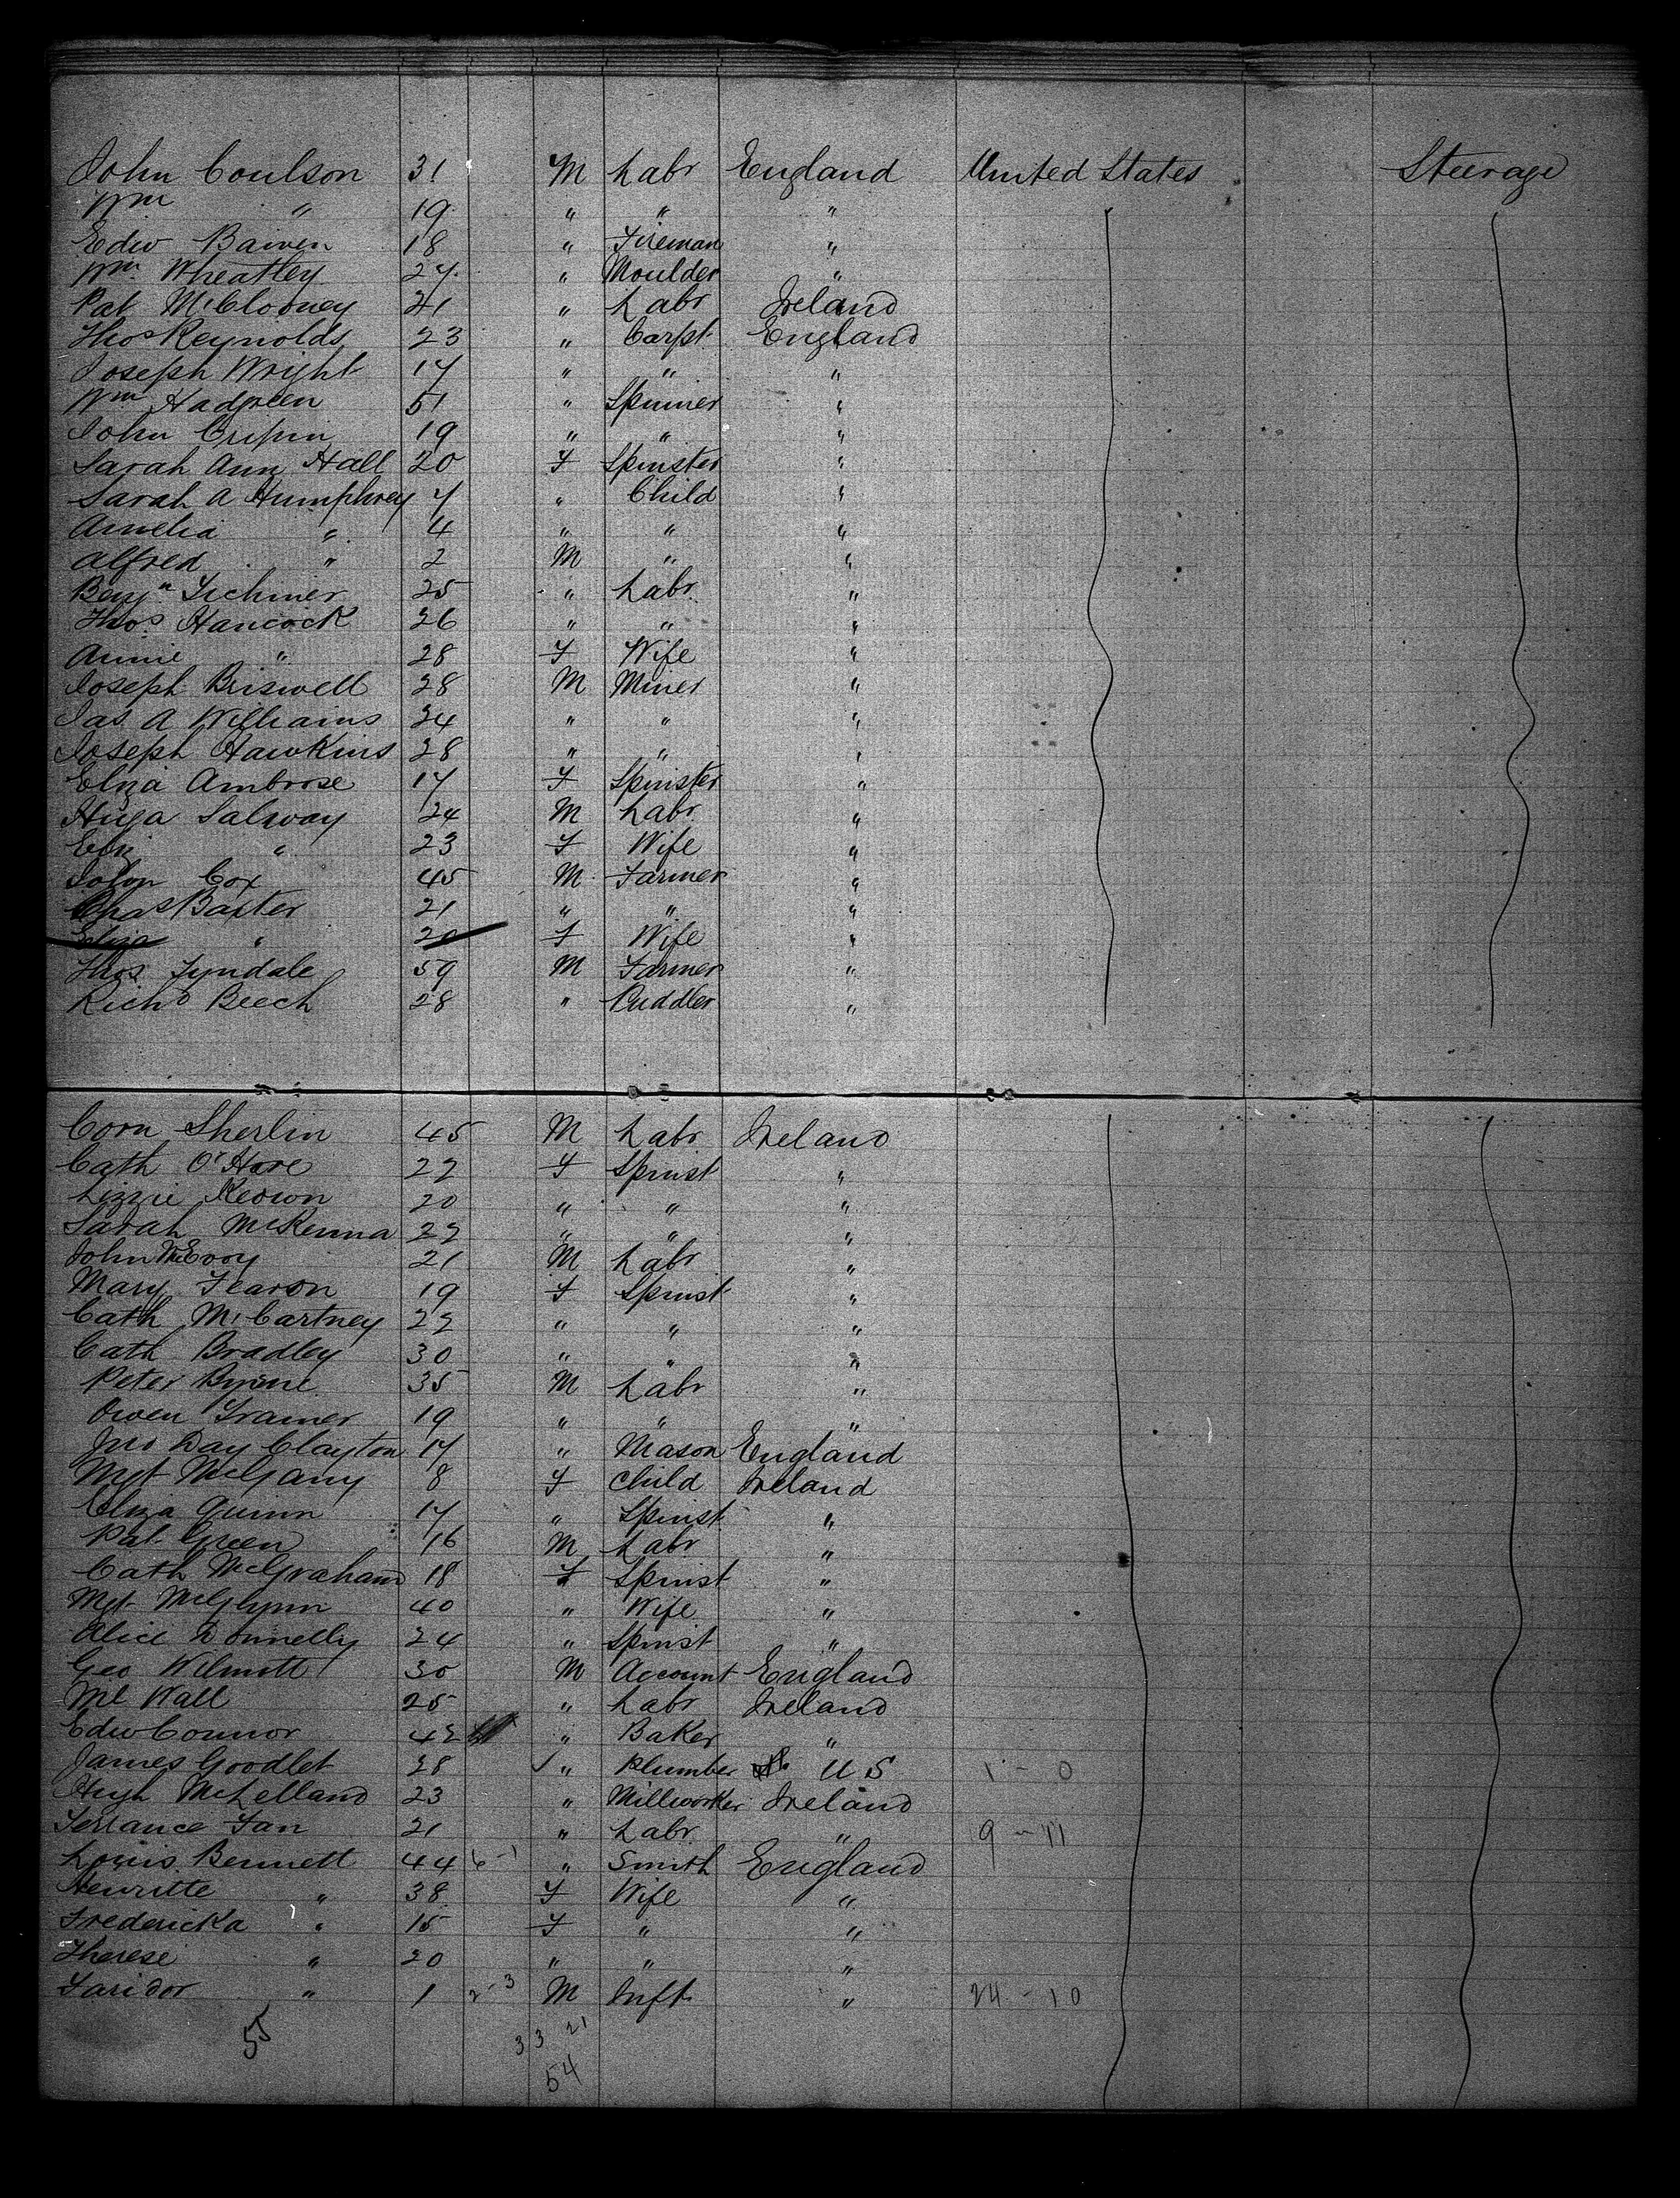 John Coulson 31 M Labr England United States Steerage
Wm " 19 " " "
Edw Bawen 18 " Fireman "
Wm Wheatley 27 " Moulder "
Pat McClooney 21 " Labr Ireland
Thos Reynolds 23 " Carpt England
Joseph Wright 17 " " "
Wm Hadgreen 51 " Spinner "
John Crispin 19 " " "
Sarah Ann Hall 20 F Spinster "
Sarah A Humphrey 7 " Child "
Amelia " 4 " " "
Alfred " 2 M " "
Benjn 25 " Labr "
Thos Hancock 26 " " "
Annie " 28 F Wife "
Joseph Briswell 28 M Miner "
Jas A Williams 24 " " "
Joseph Hawkins 28 " " "
Eliza Ambrose 17 F Spinster "
Salway 24 M Labr "
" 23 F Wife "
John Cox 45 M Farmer "
Chas Baxter 21 " " "
Eliza " 20 F Wife "
Thos Tyndale 59 M Farmer "
Richd Beech 28 " Puddler "
Corn Sherlin 45 M Labr Ireland
Cath O'Hare 22 F Spinst "
Lizzie Keown 20 " " "
Sarah McKenna 22 " " "
John McEvoy 21 M Labr "
Mary Fearon 19 F Spinst "
Cath McCartney 22 " " "
Cath Bradley 30 " " "
Peter Byrne 35 M Labr "
Owen Tramer 19 " " "
Jno Day Clayton 17 " Mason England
Mgt McGany 8 F Child Ireland
Eliza Quinn 17 " Spinst "
Pat Green 16 M Labr "
Cath McGraham 18 F Spinst "
Mgt McGlynn 40 " Wife "
Alice Donnelly 24 " Spinst "
Geo Wilmott 30 M Account England
Ml Wall 25 " Labr Ireland
Edw Connor 42 " Baker "
James Goodlet 28 " Plumber U S 1 - 0
Hugh McLelland 23 " Millworker Ireland
Terrance Fan 21 " Labr " 9 - 11
Louis Bennett 44 6-1 " Smith England
Henritte " 38 F Wife "
Fredericka " 15 F " "
Therese " 20 " " "
Faridor " 1 2-3 M Inft " 24 - 10
55 33 21
54